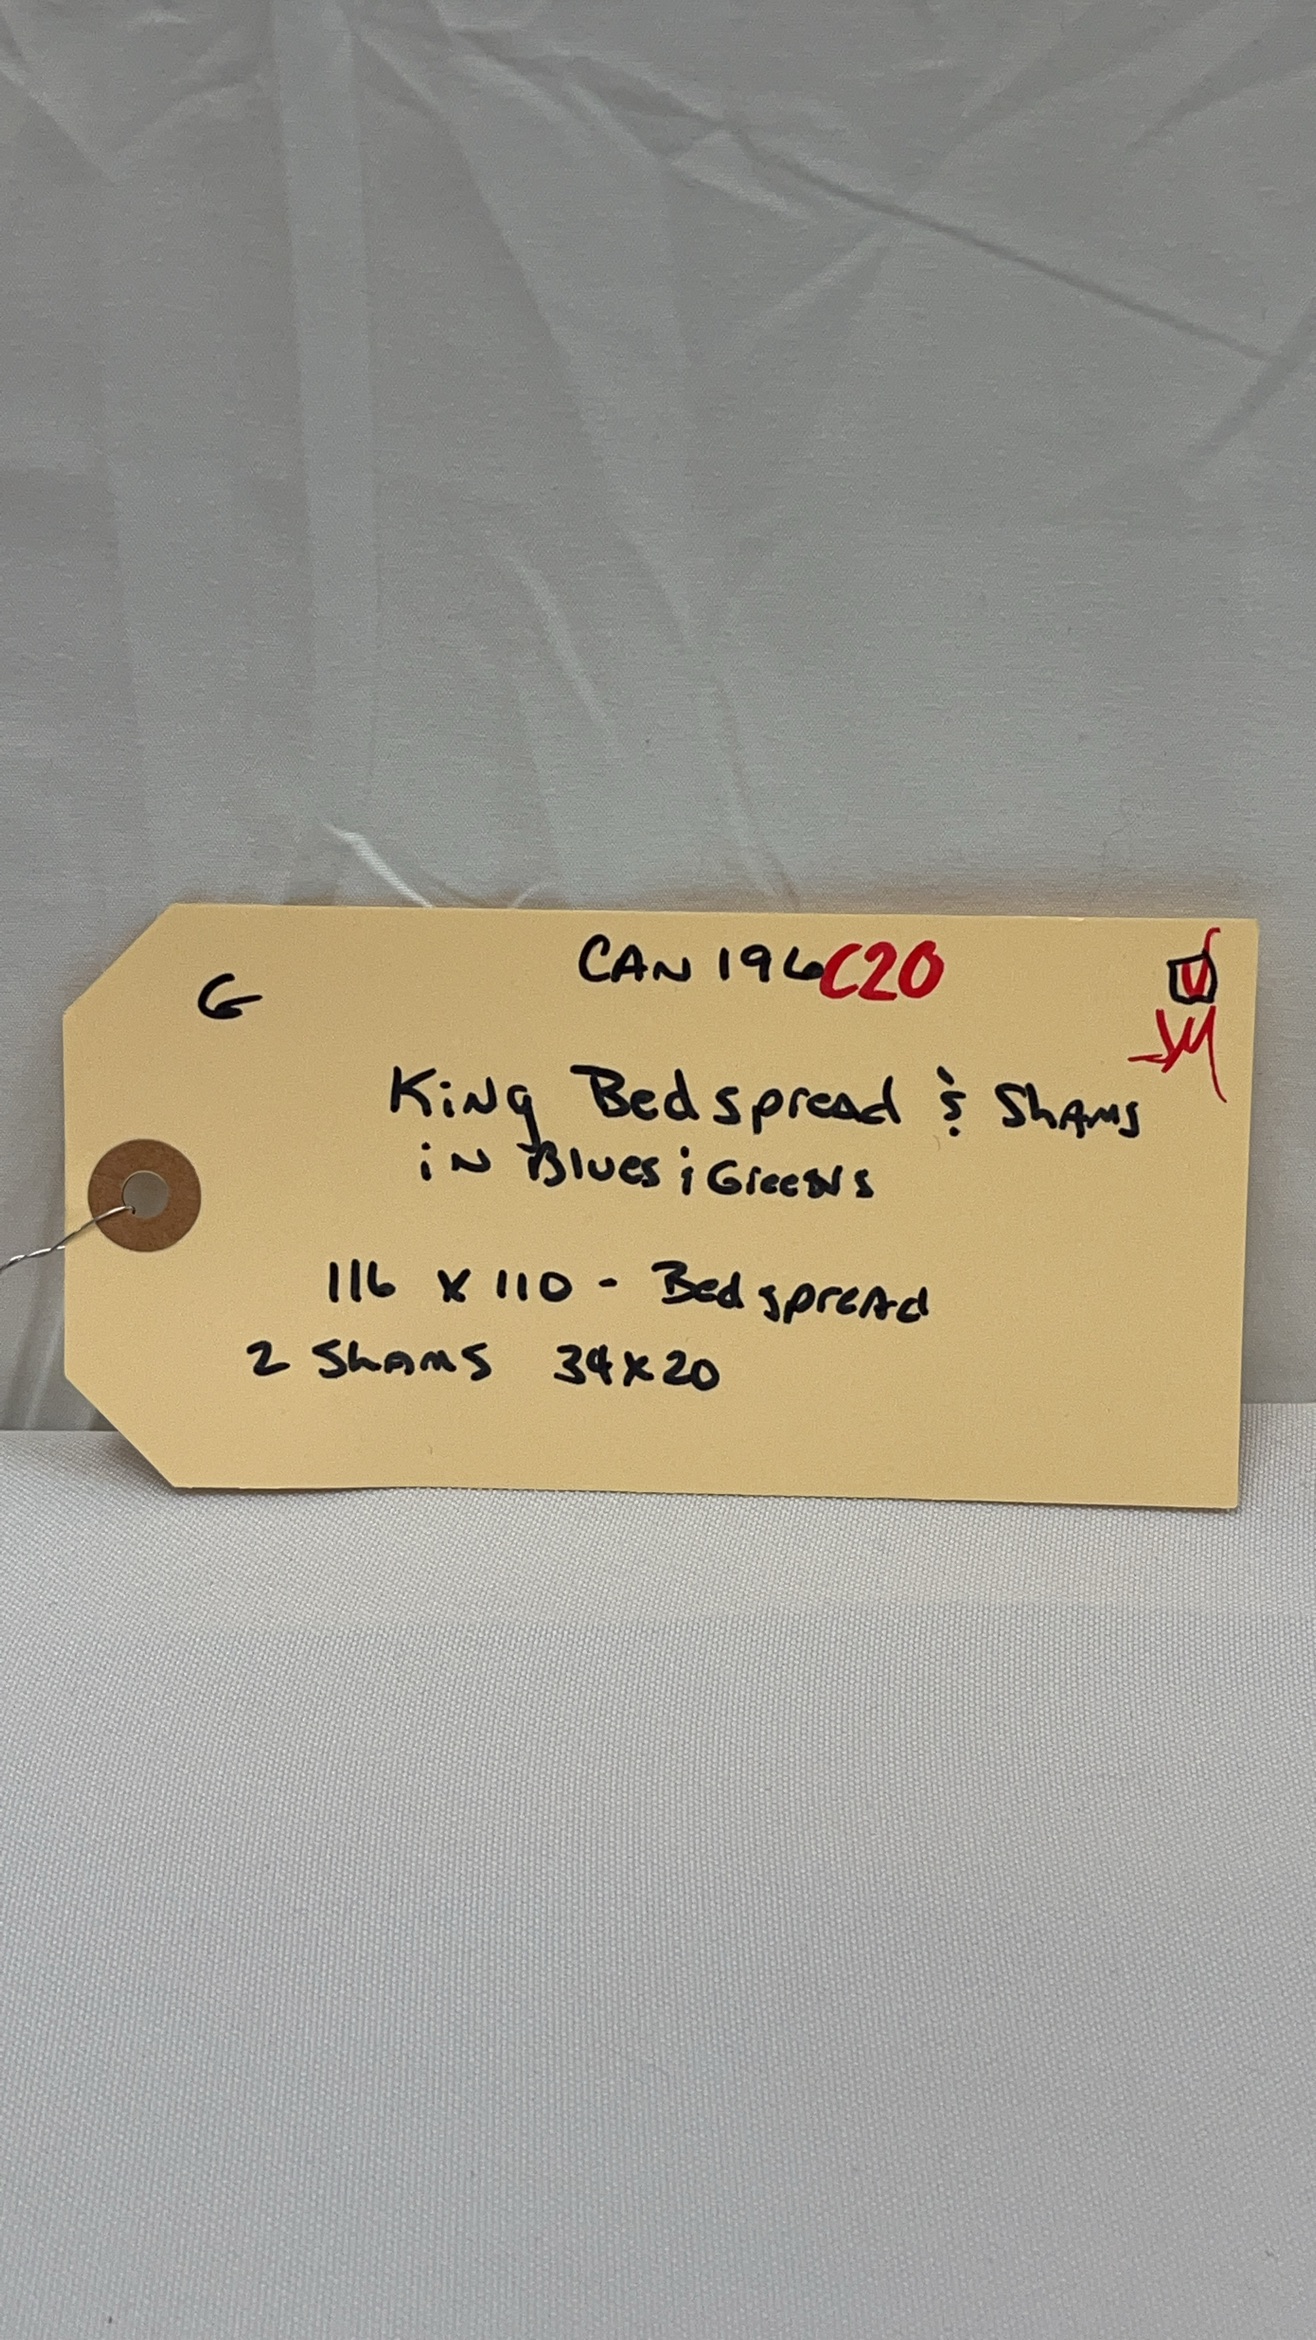 G
CAN 196C20
King Bedspread & Shams
in Blues & Greens
116 x 110 - Bedspread
2 Shams 34x20